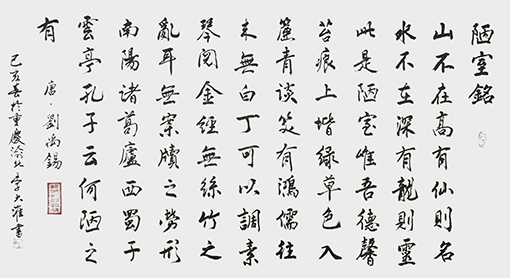 陋室銘
山不在高有仙則名
水不在深有龍則靈
此是陋室惟吾德馨
苔痕上堦綠草色入
簾青談笑有鴻儒往
来無白丁可以調素
琴閱金經無絲竹之
亂耳無案牘之勞形
南陽諸葛廬西蜀子
雲亭孔子云何陋之
有
唐·劉禹錫
己亥春於重慶渝北李大書